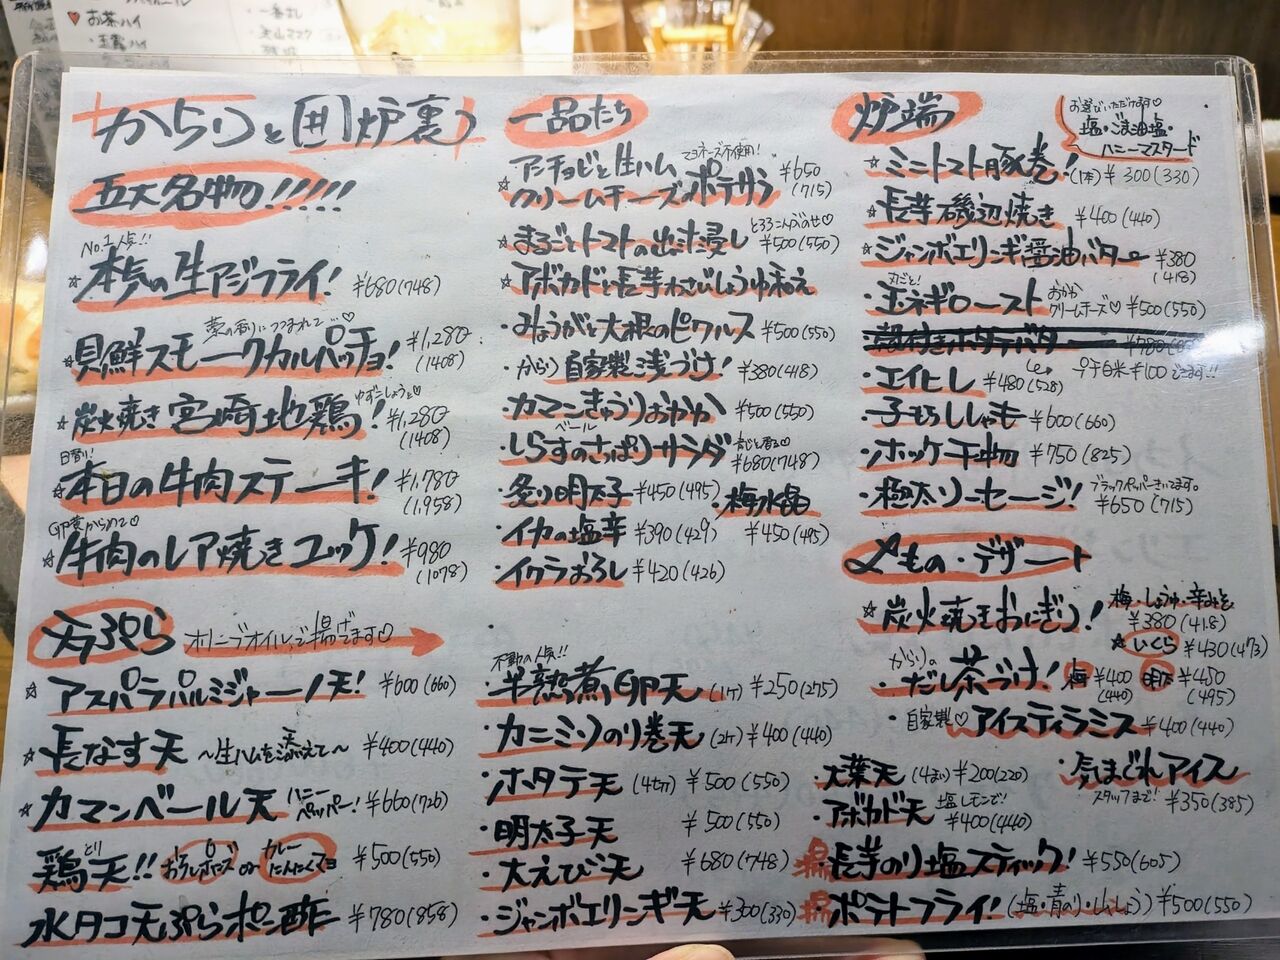 ♥お茶ハイ
・玉露ハイ
からりと囲炉裏
五大名物!!!!!
No.1人気!!
☆本気の生アジフライ! ¥680(748)
藁の香りにつつまれて…♡
☆貝鮮スモークカルパッチョ! ¥1,280(1408)
☆炭火焼き宮崎地鶏! ゆずこしょうと♡ ¥1,280(1408)
日替り!
☆本日の牛肉ステーキ! ¥1,780(1,958)
卵黄からめて♡
☆牛肉のレア焼きユッケ! ¥980(1078)
天ぷら オリーブオイルで揚げてます♡
☆アスパラパルミジャーノ天! ¥600(660)
☆長なす天 〜生ハムを添えて〜 ¥400(440)
☆カマンベール天 ハニーペッパー! ¥660(726)
鶏天!! とり おろしポン酢 or カレーにんにくマヨ ¥500(550)
水タコ天ぷらポン酢 ¥780(858)
一品たち
☆アンチョビと生ハム マヨネーズ不使用!
クリームチーズポテサラ ¥650(715)
☆まるごとトマトの出汁浸し とろろこんぶのせ♡ ¥500(550)
☆アボカドと長芋わさびしょうゆ和え
・みょうがと大根のピクルス ¥500(550)
・からり自家製浅づけ! ¥380(418)
・カマンきゅうりおかか ¥500(550)
ベール
・しらすのさっぱりサラダ ¥680(748)
・炙り明太子 ¥450(495)
・梅水晶 ¥450(495)
・イカの塩辛 ¥390(429)
・イクラおろし ¥420(426)
不動の人気!!
・半熟煮卵天 (1ケ) ¥250(275)
・カニミソのり巻天 (2ケ) ¥400(440)
・ホタテ天 (4ケ) ¥500(550)
・明太子天 ¥500(550)
・大えび天 ¥680(748)
・ジャンボエリンギ天 ¥300(330)
・大葉天 (4まい) ¥200(220)
・アボカド天 塩レモンで! ¥400(440)
・長芋のり塩スティック! ¥550(605)
・ポテトフライ! (塩・青のり・山しょう) ¥500(550)
炉端
お選びいただけます♡
塩・ごま油塩・
ハニーマスタード
☆ミニトマト豚巻! (1本) ¥300(330)
☆長芋磯辺焼き ¥400(440)
☆ジャンボエリンギ醤油バター ¥380(418)
丸ごと!
・玉ネギロースト おかかクリームチーズ♡ ¥500(550)
殻付きホタテバター ¥780
・エイヒレ ¥480(528)
・子もちししゃも ¥600(660)
・ホッケ干物 ¥750(825)
・極太ソーセージ! ブラックペッパーきいてます。 ¥650(715)
〆もの・デザート
☆炭火焼きおにぎり! 梅・しょうゆ・辛みそ ¥380(418)
★いくら ¥430(473)
からりの
・だし茶づけ! 梅 ¥400(440) 明太 ¥450(495)
・自家製♡アイスティラミス ¥400(440)
・気まぐれアイス
スタッフまで! ¥350(385)